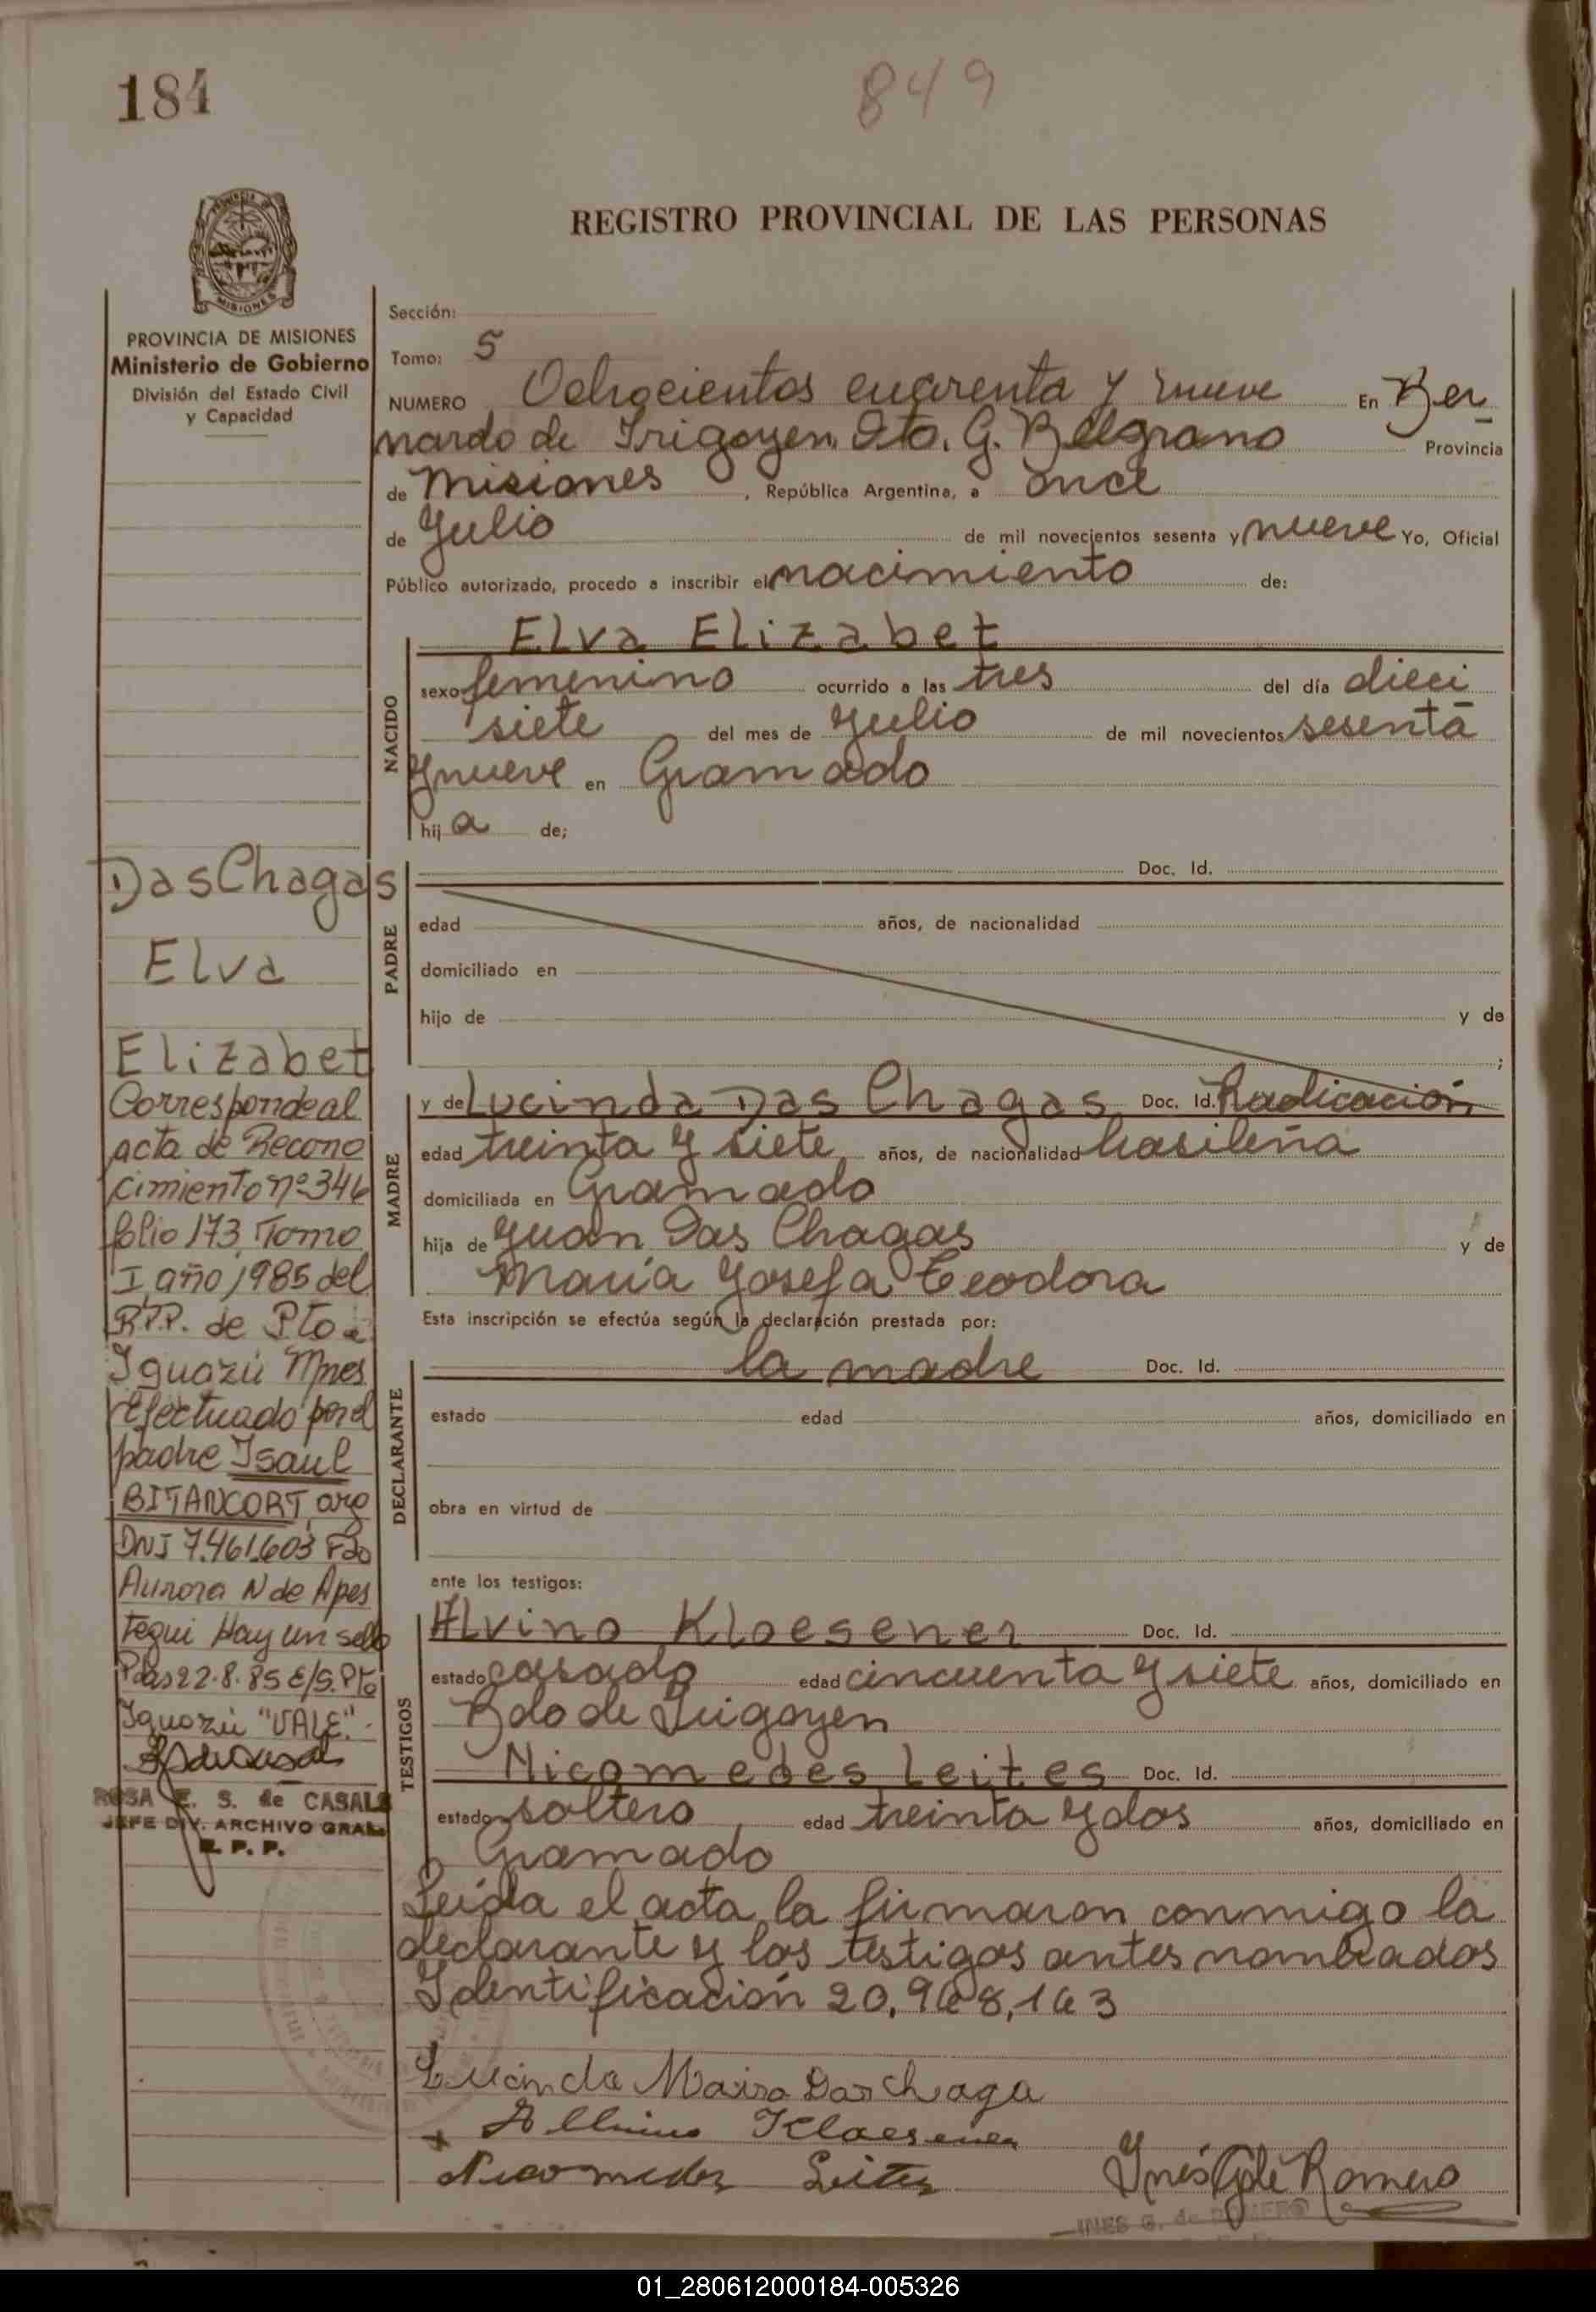 184
849
REGISTRO PROVINCIAL DE LAS PERSONAS
MISIONES
PROVINCIA DE MISIONES
Ministerio de Gobierno
División del Estado Civil
y Capacidad
Sección:
Tomo: 5
NUMERO Ochocientos cuarenta y nueve En Ber
nardo de Irigoyen Dto. G. Belgrano Provincia
de Misiones, República Argentina, a once
de Julio de mil novecientos sesenta y nueve Yo, Oficial
Público autorizado, procedo a inscribir el nacimiento de:
NACIDO
Elva Elizabet
sexo femenino ocurrido a las tres del día dieci
siete del mes de Julio de mil novecientos sesenta
y nueve en Gramado
hija de;
PADRE
Doc. Id.
edad años, de nacionalidad
domiciliado en
hijo de y de
;
MADRE
y de Lucinda Das Chagas Doc. Id. Radicación
edad treinta y siete años, de nacionalidad brasileña
domiciliada en Gramado
hija de Juan Das Chagas y de
Maria Josefa Teodora
Esta inscripción se efectúa según la declaración prestada por:
DECLARANTE
la madre Doc. Id.
estado edad años, domiciliado en
obra en virtud de
ante los testigos:
TESTIGOS
Alvino Kloesener Doc. Id.
estado casado edad cincuenta y siete años, domiciliado en
Bdo de Irigoyen
Nicomedes Leites Doc. Id.
estado soltero edad treinta y dos años, domiciliado en
Gramado
Leida el acta la firmaron conmigo la
declarante y los testigos antes nombrados
Identificación 20,968,163
Lucinda Maira Das Chaga
Alvino Kloesener
Nicomedes Leites
Inés G de Romero
INES G. de ROMERO
Das Chagas
Elva
Elizabet
Corresponde al
acta de Recono
cimiento nº 346
folio 173 Tomo
I año 1985 del
R.P.P. de Pto
Iguazú Mnes
efectuado por el
padre Isaul
BITANCORT, arg
DNI 7.461.603 Fdo
Aurora N de Apes
tegui Hay un sello
Pdas 22.8.85 E/S. Pto
Iguazú "VALE".
ROSA E. S. de CASALS
JEFE DIV. ARCHIVO GRAL.
R. P. P.
01_280612000184-005326